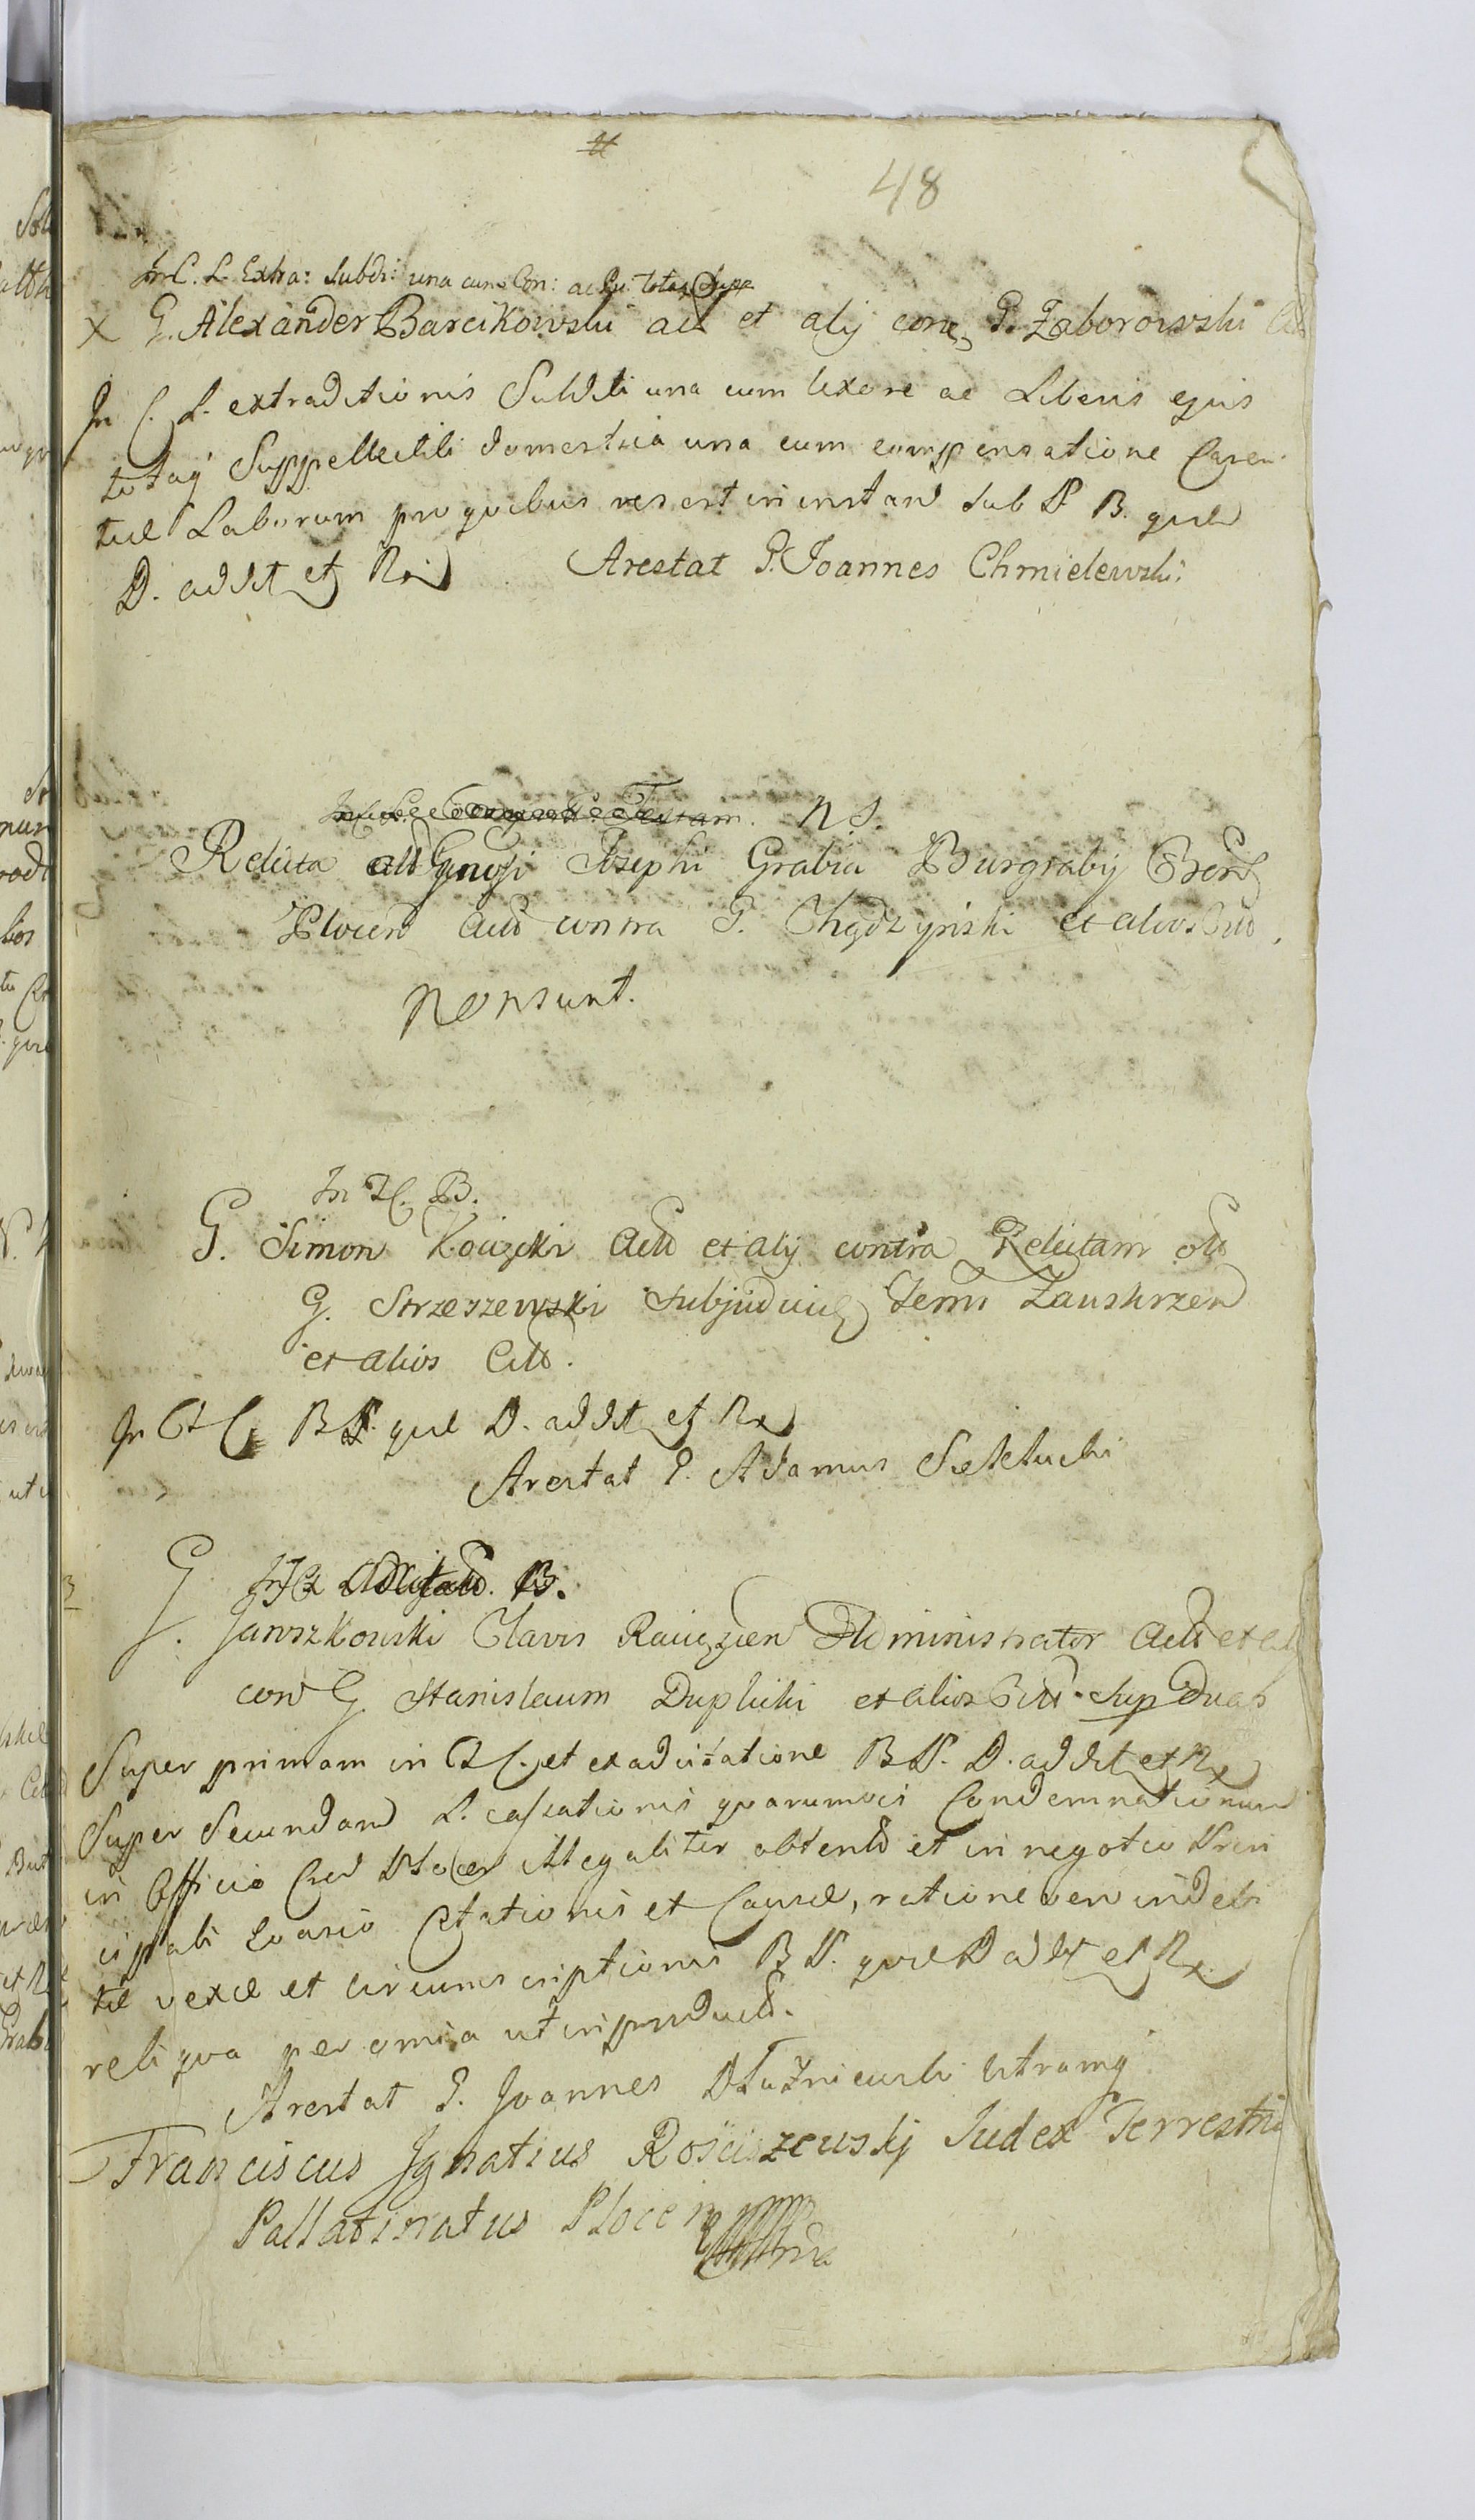 48
In C. L. Extra: Subdi: una cum Con: ac
X G. Alexander Barcikowski act et alij con G. Zaborowski
In C. L. extraditionis Subditi una cum Uxore ac Liberis ejus
totaq Suppellectili domestica una cum compensatione Caren
tiæ Laborum pro quibus res est in instan sub P B. quæ
D. addit et Rx
Arestat G. Joannes Chmielewski
N S.
Relicta olld Genosi Josephi Grabia Burgrabij
Plocen Act contra G. Chądzyński et alios Citt.
Non sunt.
In C. B.
G. Simon Act et alij contra Relictam olld
G. Strzeszewski Subjudicis Terris Zauskrzen
et alios Citt.
In C B P. quæ D. addit et Rx
Arestat G. Adamus
B.
G. Januszkowski Clavis Raciązen Administrator Act et
con G Stanislaum Duplicki et alios Citt. Sup duas
Super primam in C. et ex adcitatione B P. D. addit et Rx
Super Secundam L. cassationis quarumvis Condemnationum
in Officio illegaliter obtent et in negotio Prin
cipali evasio Citationis et Causæ, ratione vero indebi
tæ vexæ et circumscriptionis B P. quæ D addit et Rx
reliqua per omnia ut in product.
Arestat G. Joannes Dłużniewski utramq
Franciscus Ignatius Rościszewskj Judex Terrestris
Pallatinatus Plocen